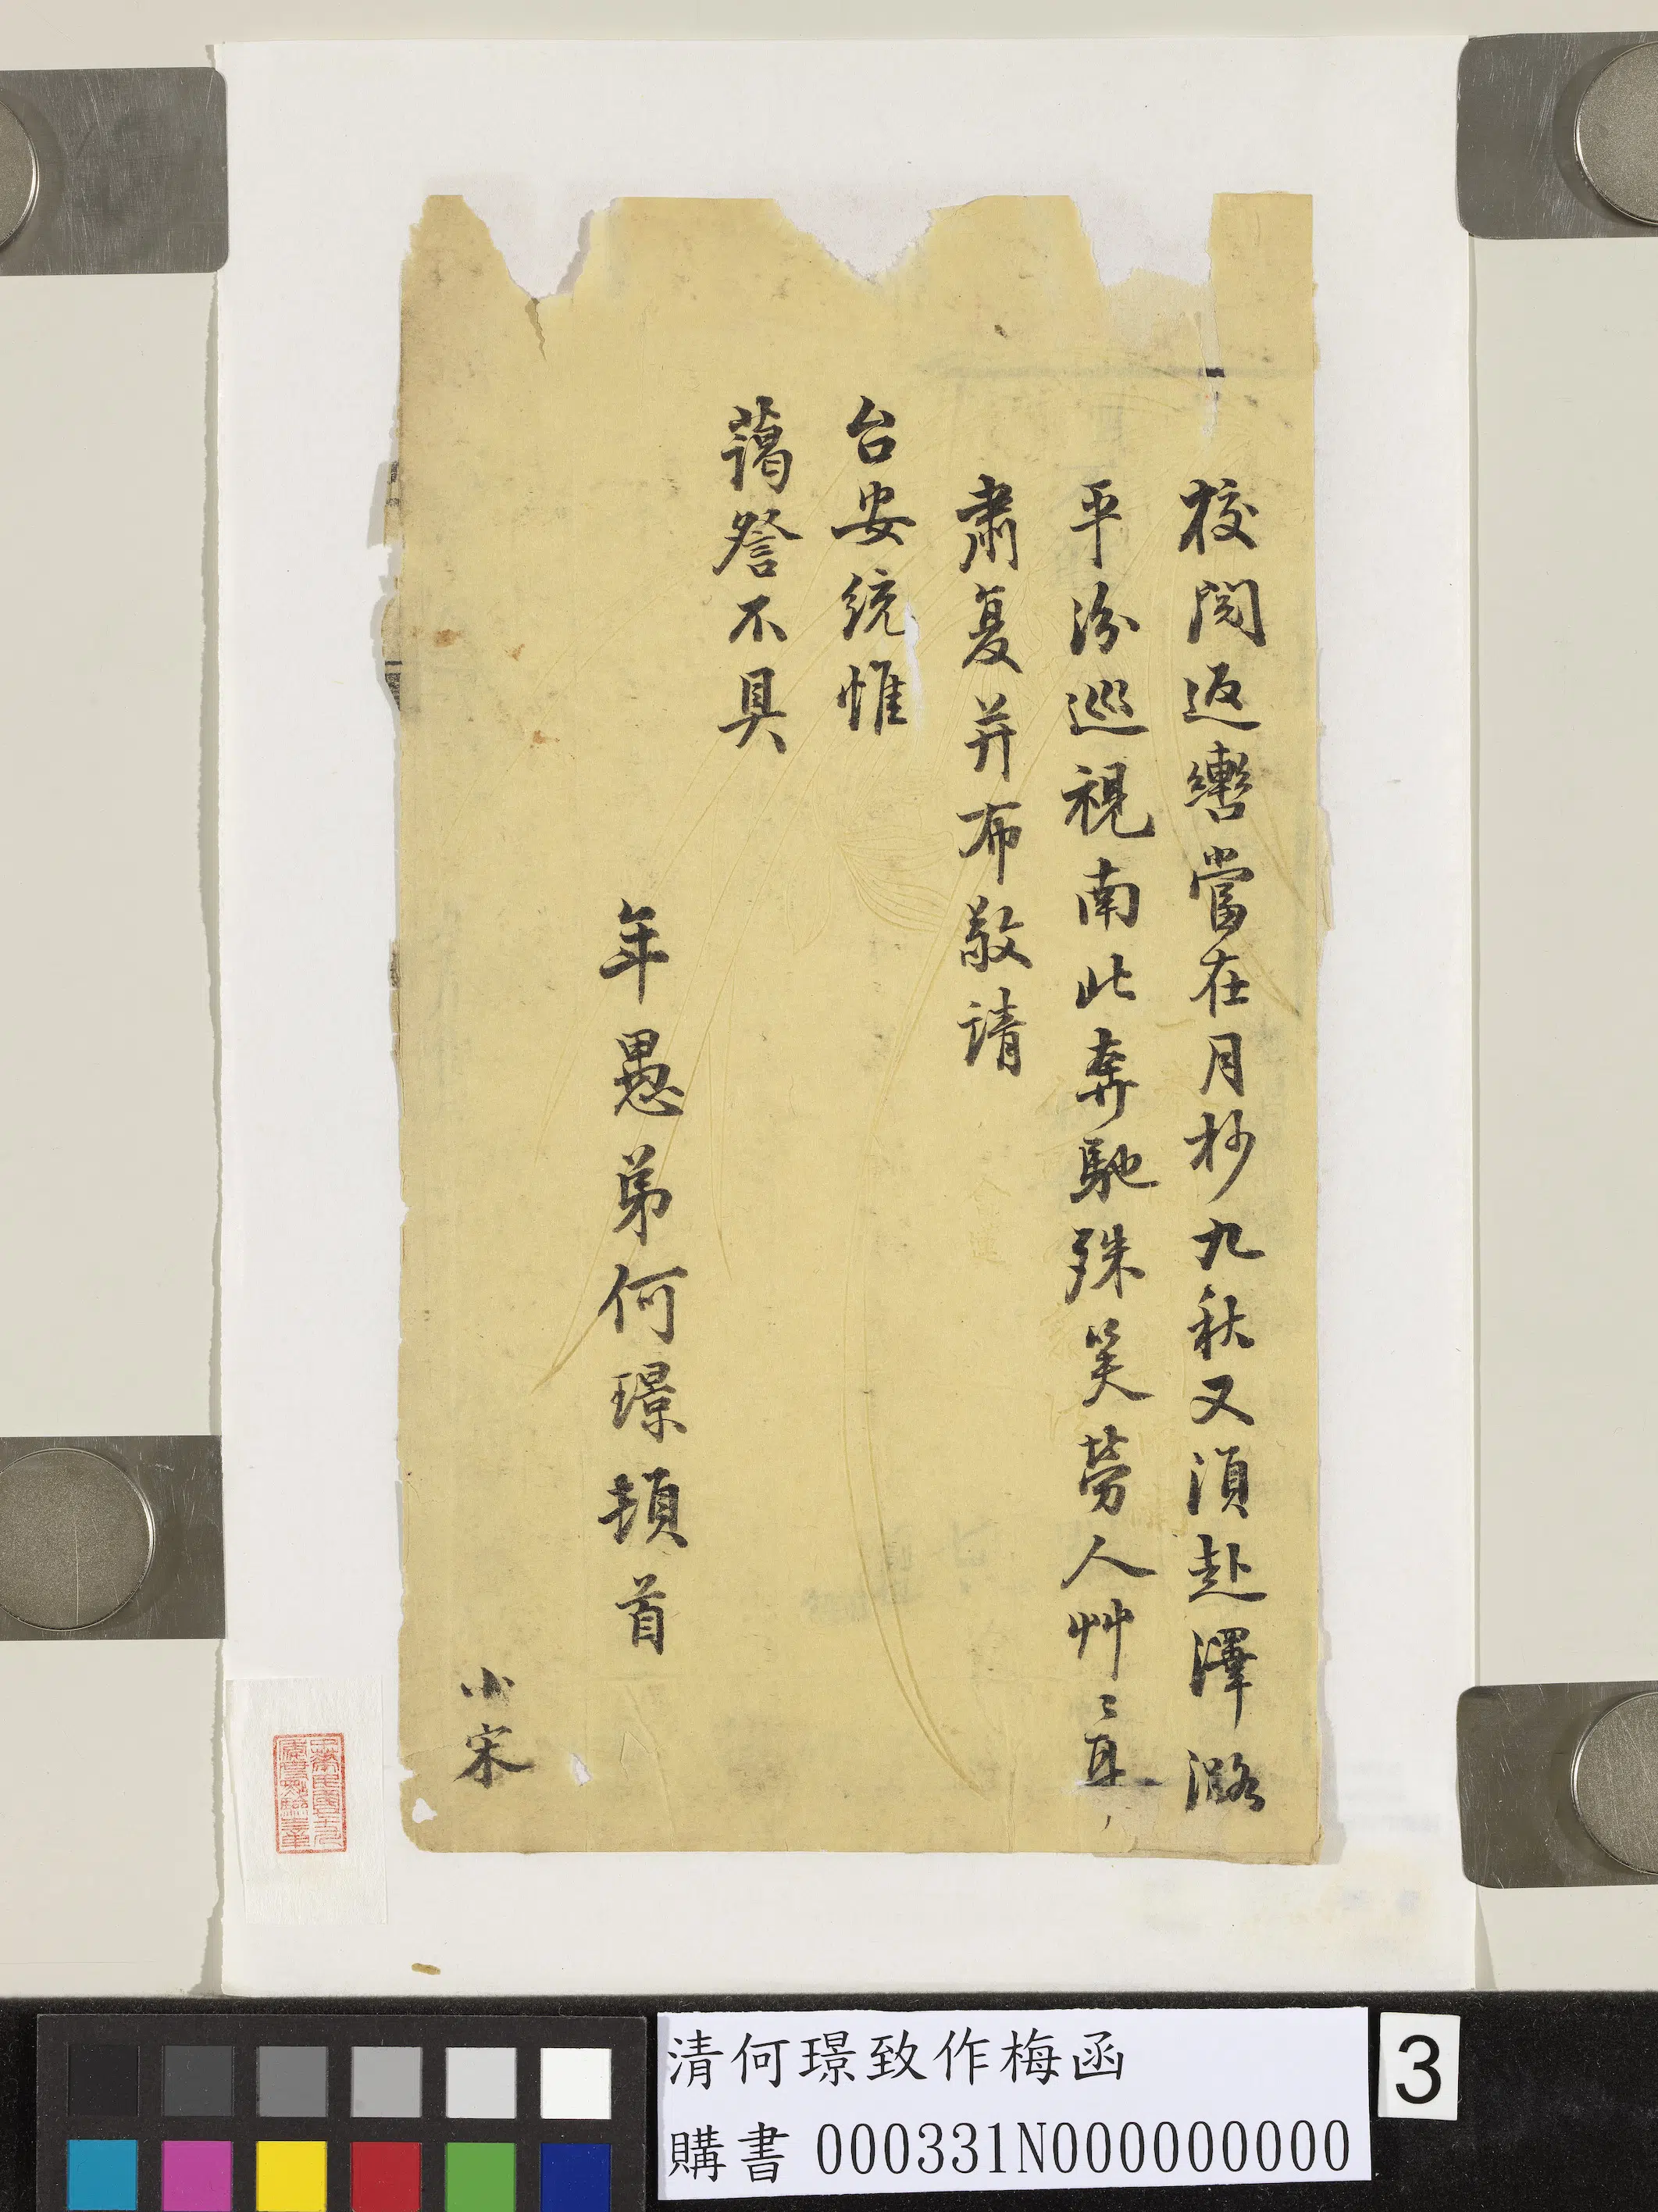 校閱返轡當在月杪九秋又須赴澤潞
平汾巡視南北奔馳殊笑勞人艸〻耳
肅复并布敬請
台安統惟
藹詧不具
年愚弟何璟頓首
小宋
清何璟致作梅函
購書 000331N000000000
3